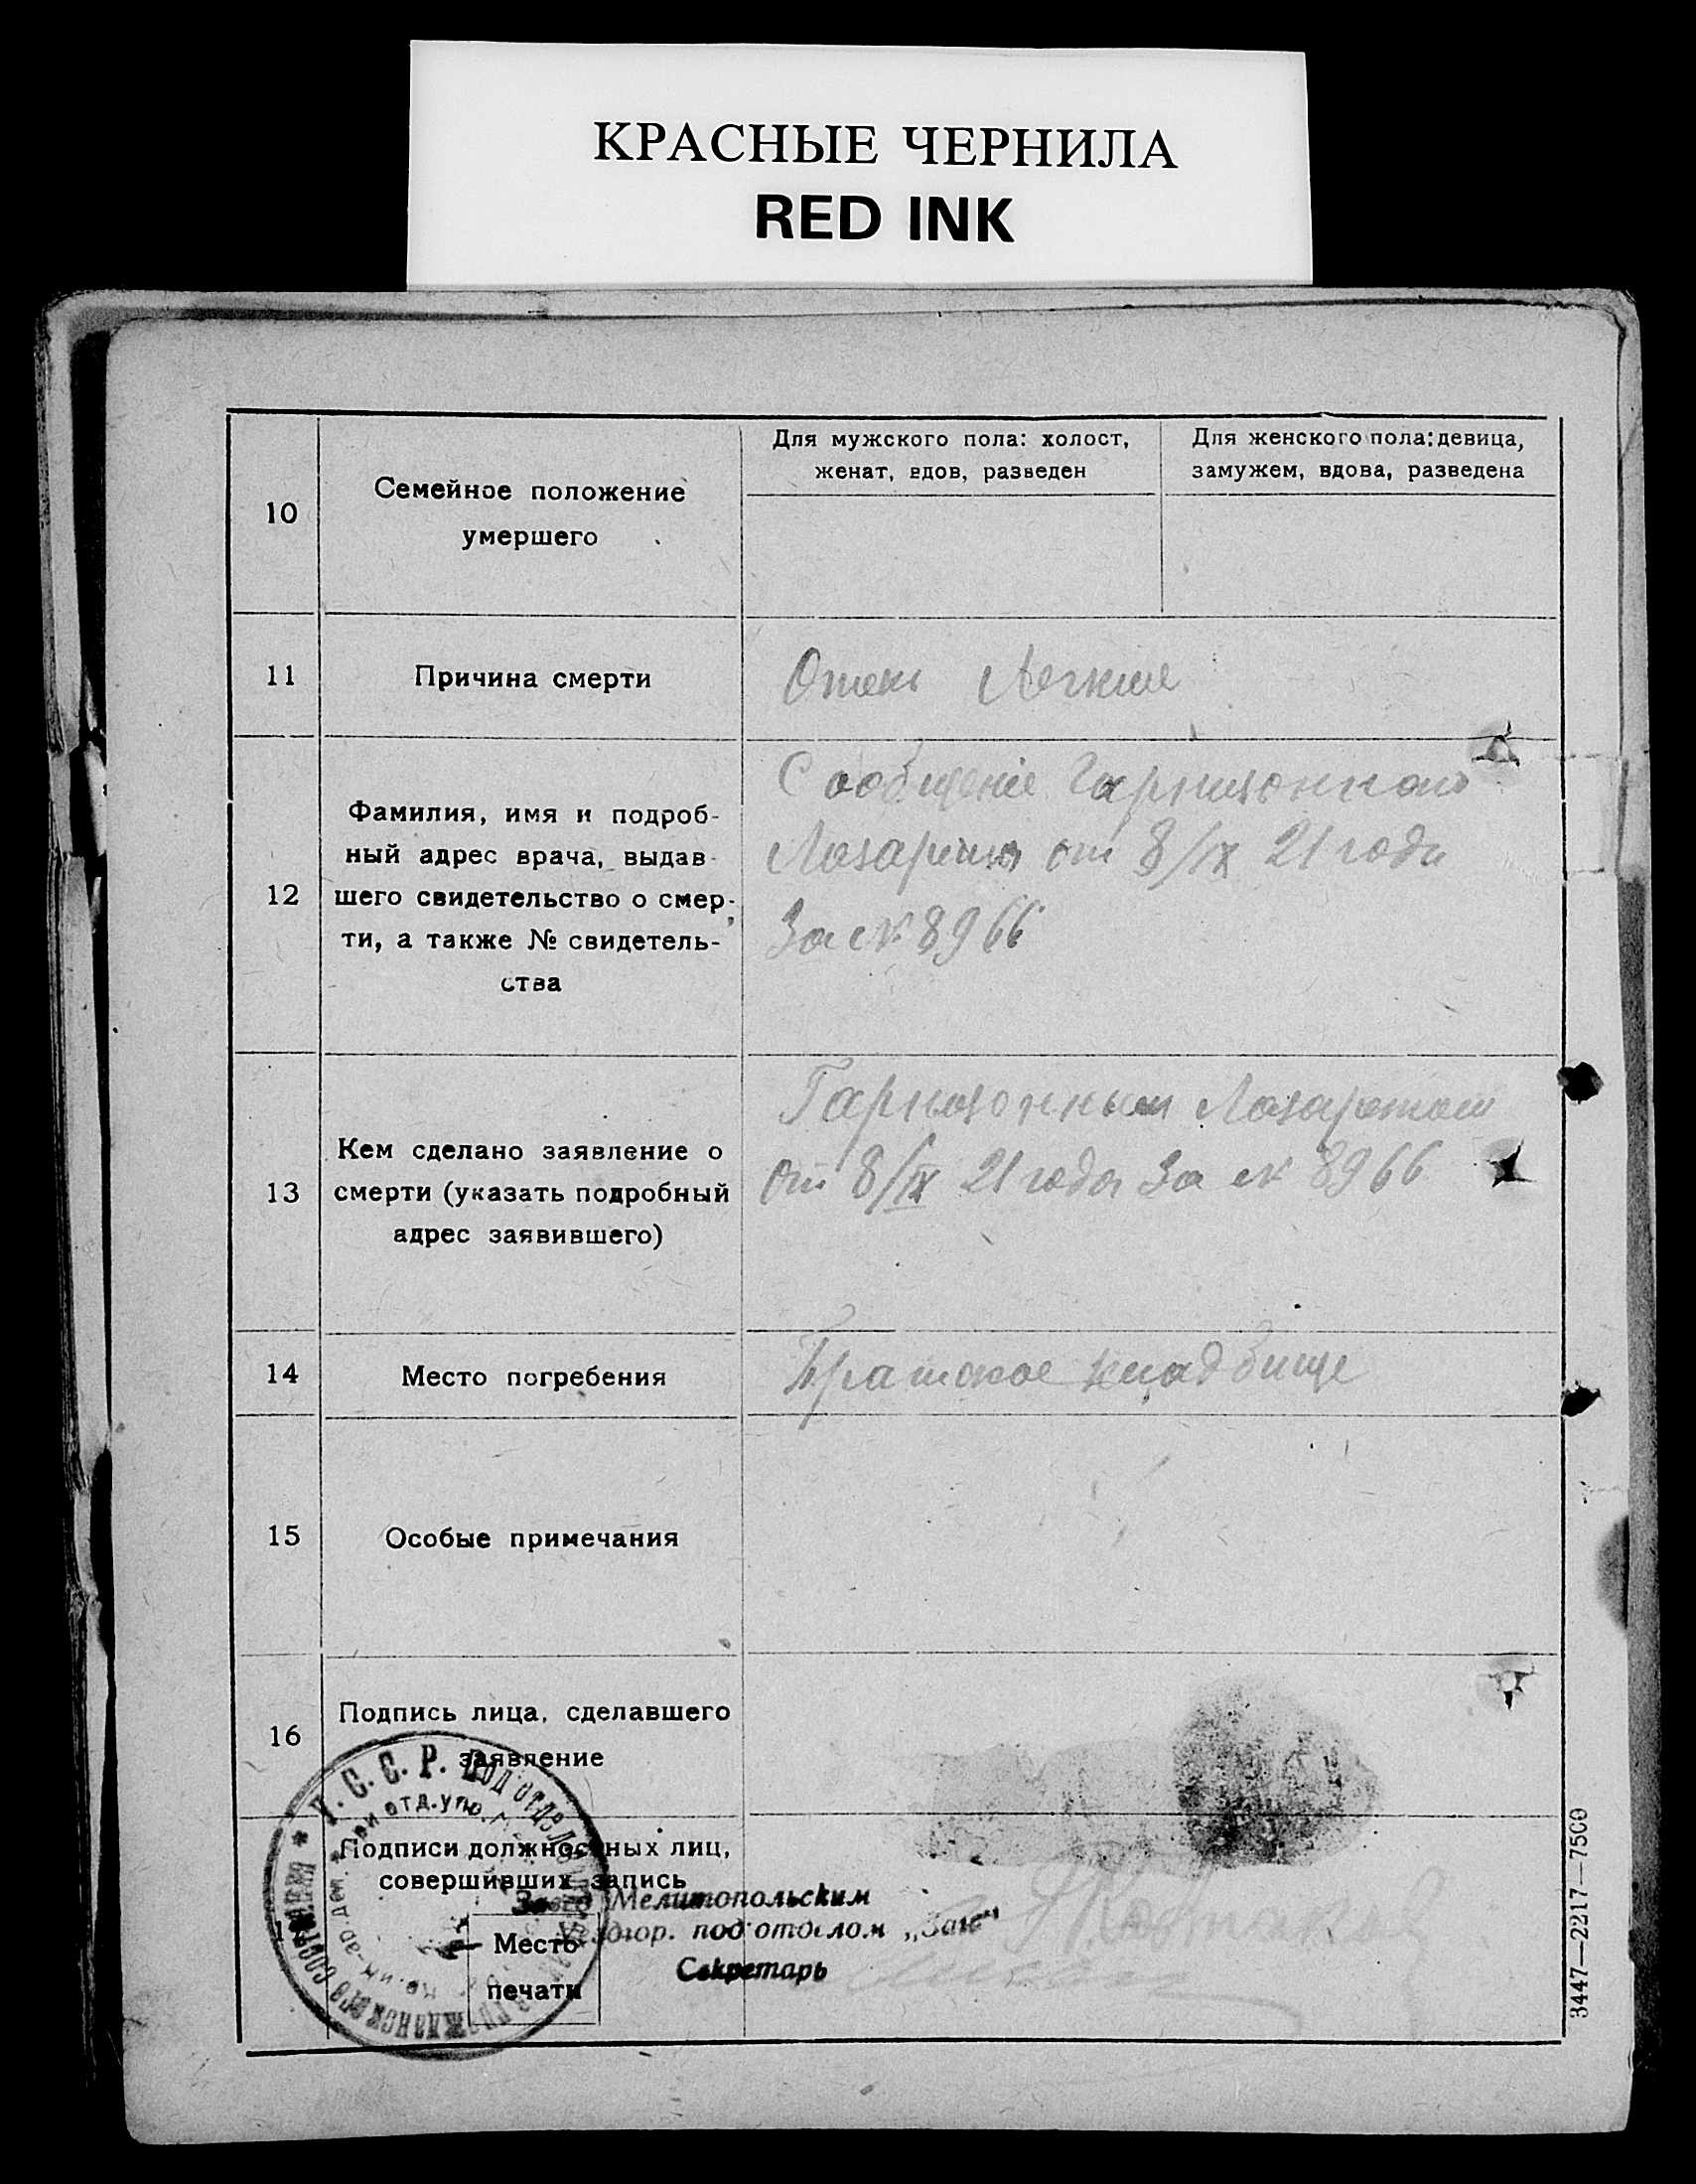 КРАСНЫЕ ЧЕРНИЛА
RED INK
10
Семейное положение
умершего
Для мужского пола: холост,
женат, вдов, разведен
Для женского пола: девица,
замужем, вдова, разведена
11
Причина смерти
Отек Легких
12
Фамилия, имя и подроб-
ный адрес врача, выдав-
шего свидетельство о смер-
ти, а также № свидетель-
ства
Сообщение Гарнизонного
Лазарета от 8/IX 21 года
За № 8966
13
Кем сделано заявление о
смерти (указать подробный
адрес заявившего)
Гарнизонным Лазаретом
от 8/IX 21 года За № 8966
14
Место погребения
Братское кладбище
15
Особые примечания
16
Подпись лица, сделавшего
заявление
Подписи должностных лиц,
совершивших запись
Место
печати
Завед Мелитопольским
Уездгор. подотделом „Загс“
Секретарь
У.С.С.Р. Подотдел
3447—2217—7500